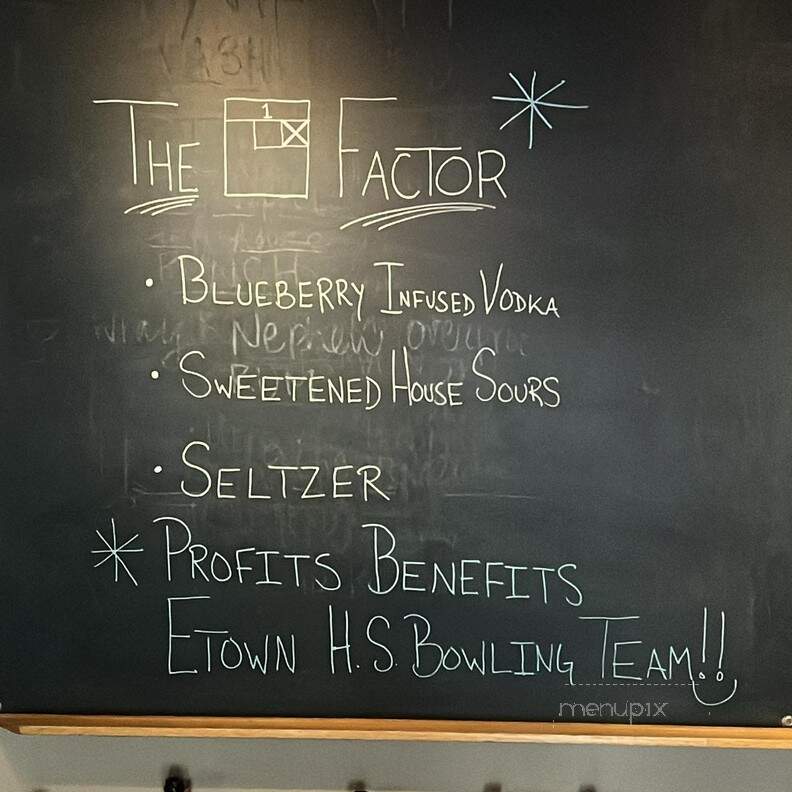 THE 1 X FACTOR *
• BLUEBERRY INFUSED VODKA
Nephew
• SWEETENED HOUSE SOURS
• SELTZER
* PROFITS BENEFITS
ETOWN H.S. BOWLING TEAM!!
menupix